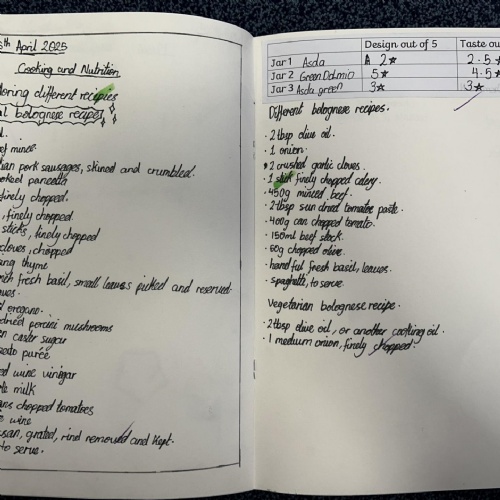 5th April 2025
Cooking and Nutrition
oring different recipies
al bolognese recipe
ef mince
ian pork sausages, skined and crumbled.
oked pancetta
finely chopped.
, finely chopped.
sticks, finely chopped
cloves, chopped
ung thyme
nch fresh basil, small leaves picked and reserved.
aves.
d oregano.
dried porcini mushrooms
n caster sugar
mato purée
ed wine vinigar
le milk
ans chopped tomatoes
e wine
san, grated, rind removed and kept.
to serve.
Design out of 5 Taste ou
Jar 1 Asda 2★ 2.5★
Jar 2 Green Dolmio 5★ 4.5★
Jar 3 Asda green 3★ 3★
Different bolognese recipes.
· 2tbsp olive oil.
· 1 onion.
· 2 crushed garlic cloves.
· 1 stick finely chopped celery.
· 450g minced beef.
· 2tbsp sun dried tomatoe paste.
· 400g can chopped tomato.
· 150ml beef stock.
· 60g chopped olive.
· handful fresh basil, leaves.
· spaghetti, to serve.
Vegetarian bolognese recipe.
· 2tbsp olive oil, or another cooking oil.
· 1 medium onion, finely chopped.